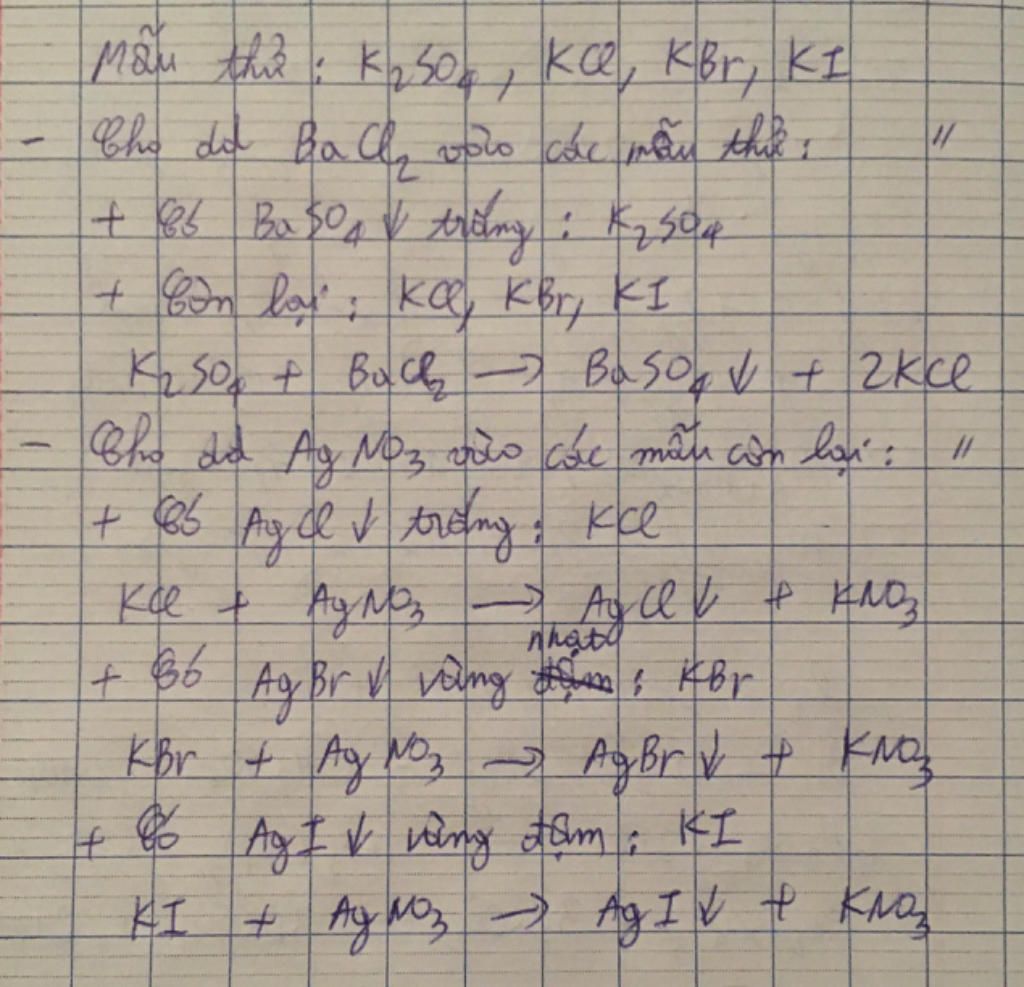 Mẫu thử : K₂SO₄, KCl, KBr, KI
- Cho dd BaCl₂ vào các mẫu thử : "
+ Có BaSO₄ ↓ trắng : K₂SO₄
+ Còn lại : KCl, KBr, KI
K₂SO₄ + BaCl₂ → BaSO₄ ↓ + 2KCl
- Cho dd AgNO₃ vào các mẫu còn lại : "
+ Có AgCl ↓ trắng : KCl
KCl + AgNO₃ → AgCl ↓ + KNO₃
+ Có AgBr ↓ vàng nhạt : KBr
KBr + AgNO₃ → AgBr ↓ + KNO₃
+ Có AgI ↓ vàng đậm : KI
KI + AgNO₃ → AgI ↓ + KNO₃